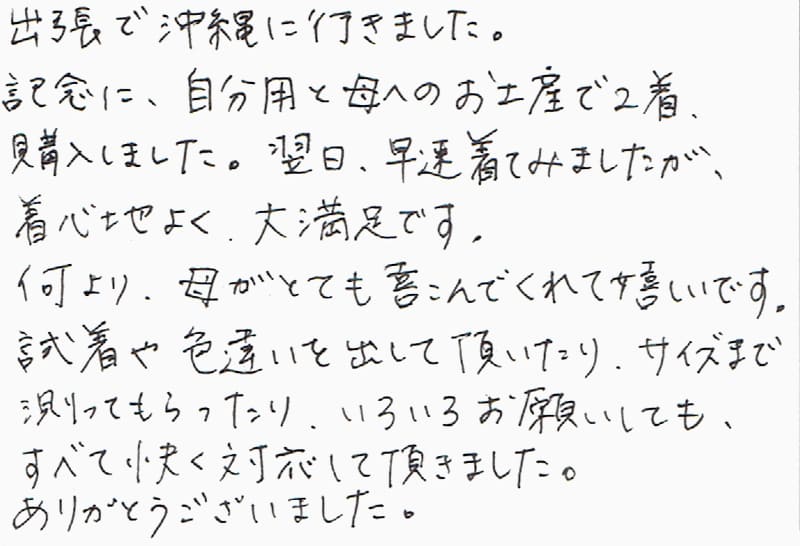 出張で沖縄に行きました。
記念に、自分用と母へのお土産で2着、
購入しました。翌日、早速着てみましたが、
着心地よく、大満足です。
何より、母がとても喜こんでくれて嬉しいです。
試着や色違いを出して頂いたり、サイズまで
測ってもらったり、いろいろお願いしても、
すべて快く対応して頂きました。
ありがとうございました。